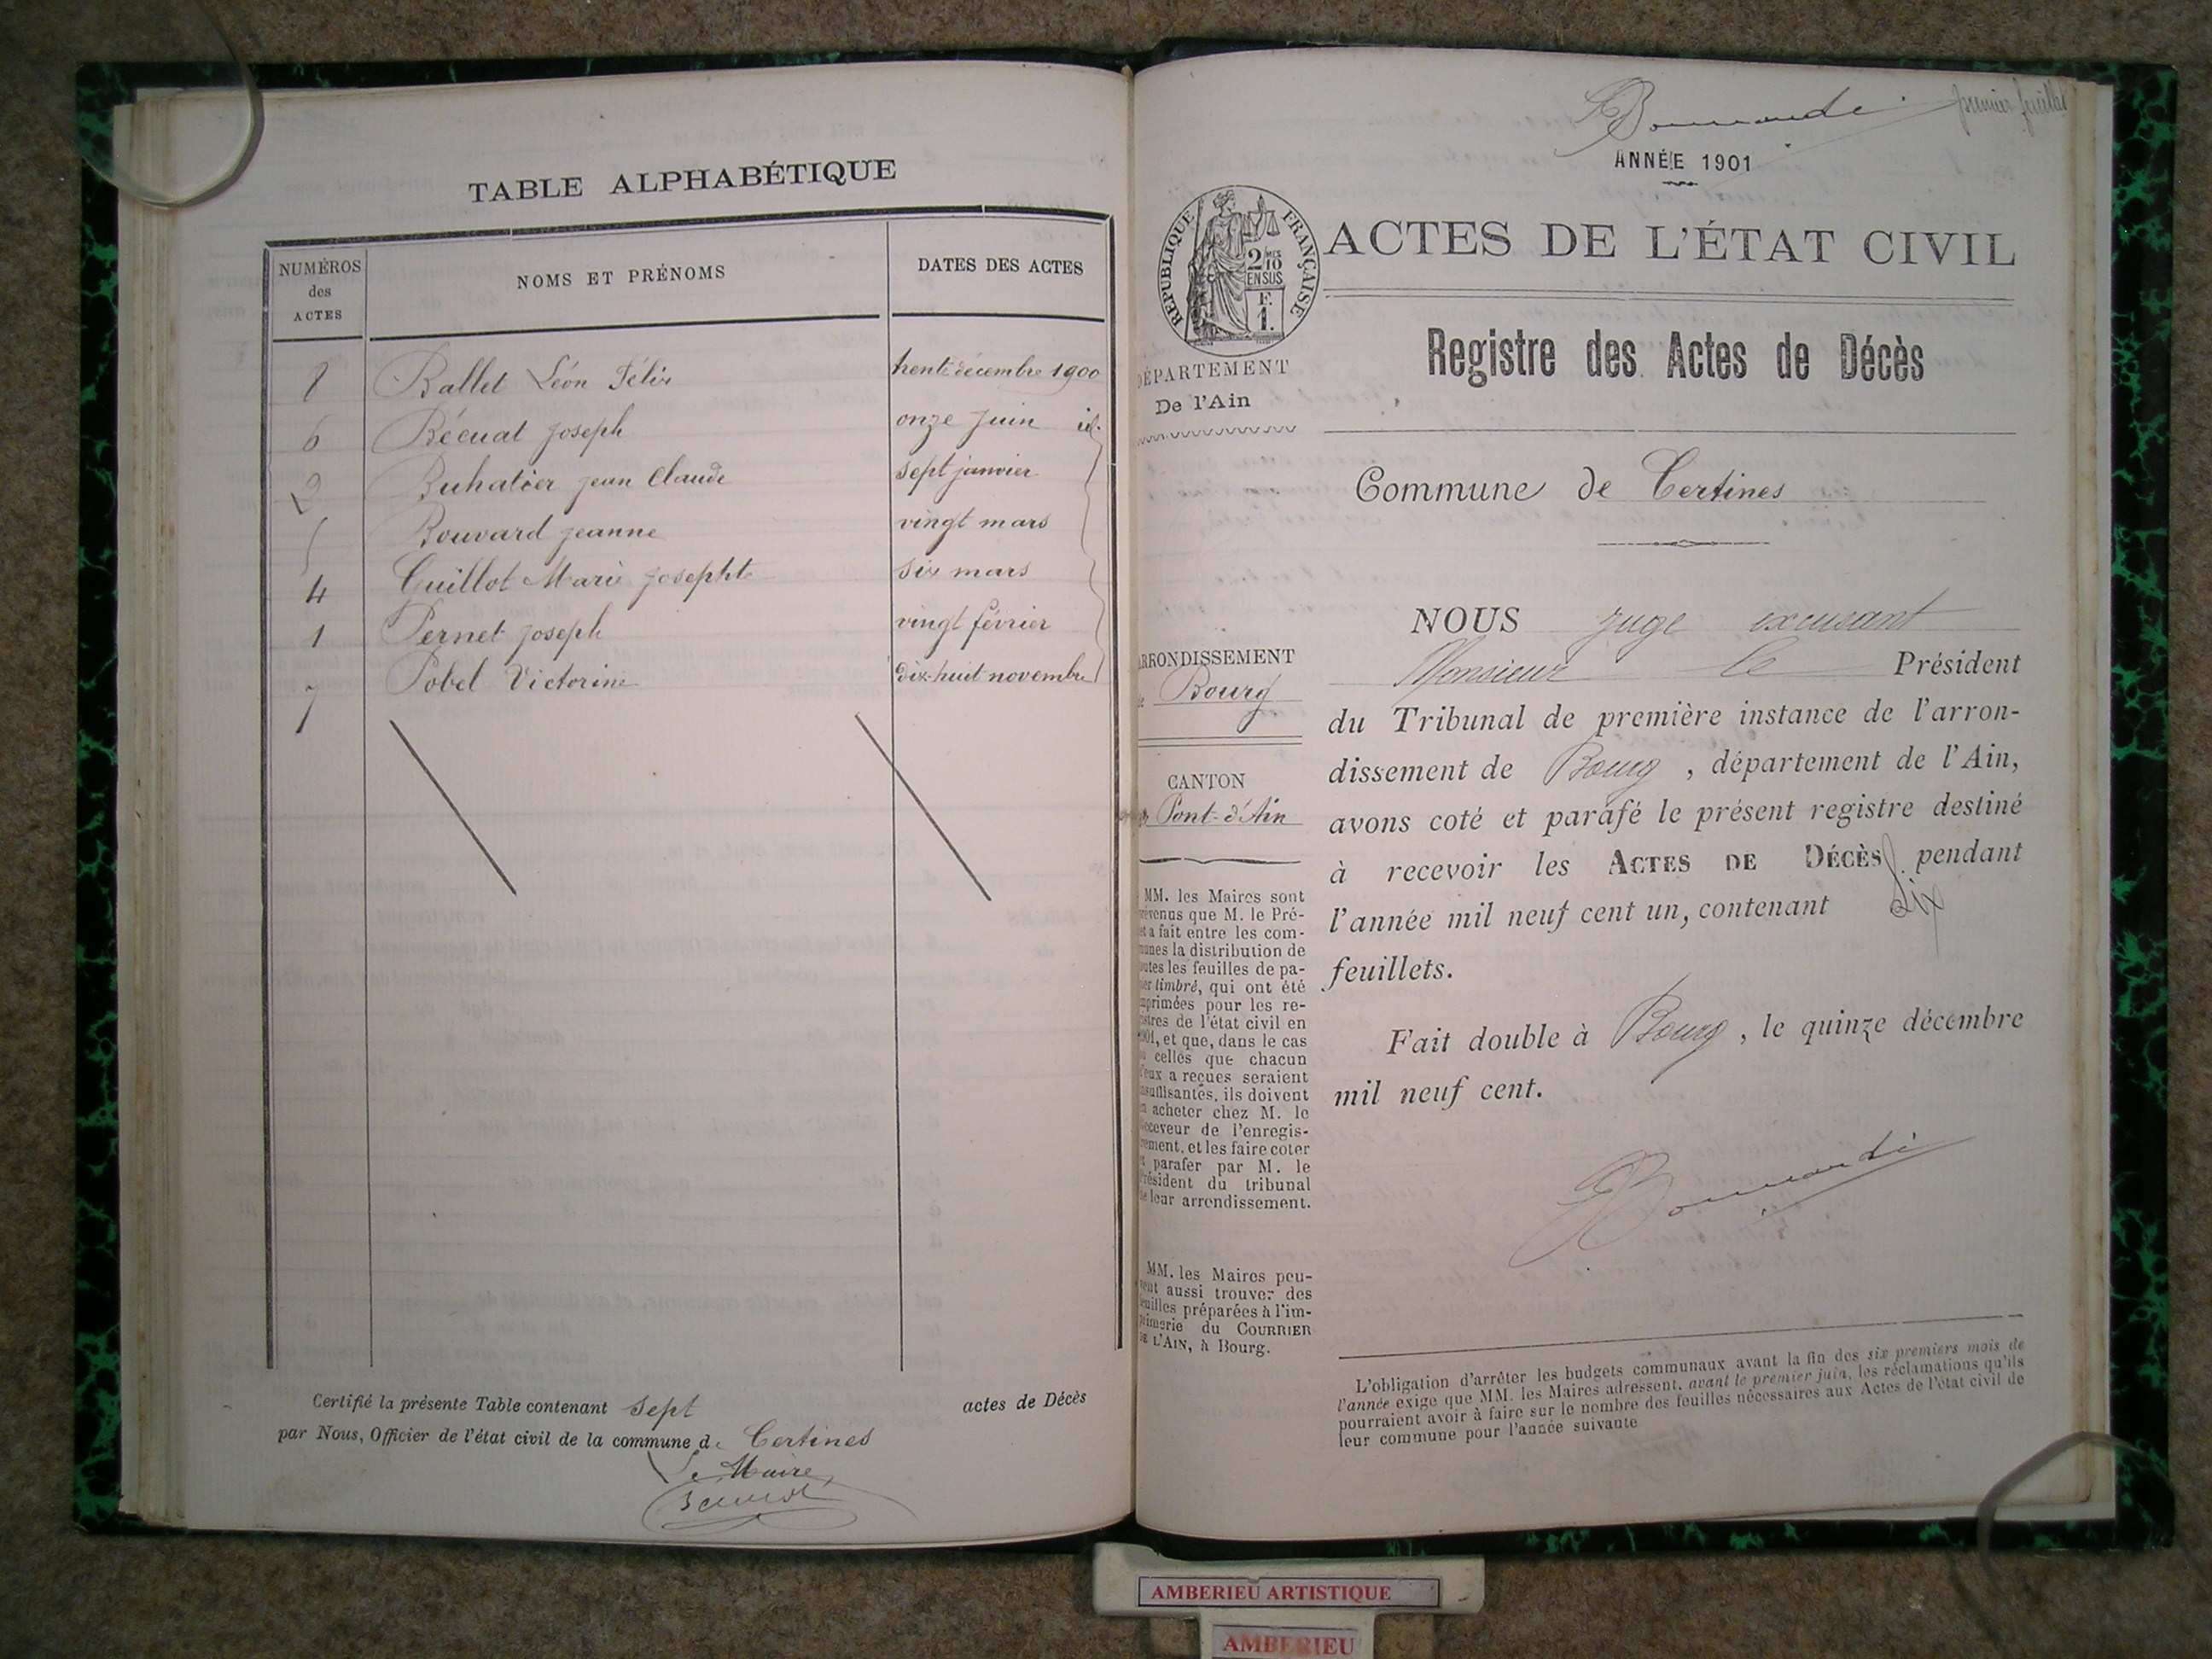 TABLE ALPHABÉTIQUE
NUMÉROS
des
ACTES
NOMS ET PRÉNOMS
DATES DES ACTES
8 Ballet Léon Félix trente décembre 1900
6 Bécuat Joseph onze juin id.
2 Buhatier jean Claude sept janvier
5 Bouvard jeanne vingt mars
4 Guillot Marie Josephte six mars
1 Pernet Joseph vingt février
7 Pobel Victorine dix-huit novembre
Certifié la présente Table contenant sept actes de Décès
par Nous, Officier de l'état civil de la commune de Certines
Le Maire
premier feuillet
ANNÉE 1901
RÉPUBLIQUE FRANÇAISE
2/10 MES
EN SUS
F.
1.
ACTES DE L'ÉTAT CIVIL
Registre des Actes de Décès
DÉPARTEMENT
De l'Ain
Commune de Certines
ARRONDISSEMENT
de Bourg
CANTON
de Pont-d'Ain
MM. les Maires sont
prévenus que M. le Pré-
fet a fait entre les com-
munes la distribution de
toutes les feuilles de pa-
pier timbré, qui ont été
imprimées pour les re-
gistres de l'état civil en
1901, et que, dans le cas
où celles que chacun
d'eux a reçues seraient
insuffisantes, ils doivent
en acheter chez M. le
Receveur de l'enregis-
trement, et les faire coter
et parafer par M. le
Président du tribunal
de leur arrondissement.
MM. les Maires peu-
vent aussi trouver des
feuilles préparées à l'im-
primerie du COURRIER
DE L'AIN, à Bourg.
NOUS juge excusant
Monsieur le Président
du Tribunal de première instance de l'arron-
dissement de Bourg, département de l'Ain,
avons coté et parafé le présent registre destiné
à recevoir les ACTES DE DÉCÈS pendant
l'année mil neuf cent un, contenant dix
feuillets.
Fait double à Bourg, le quinze décembre
mil neuf cent.
L'obligation d'arrêter les budgets communaux avant la fin des six premiers mois de
l'année exige que MM. les Maires adressent, avant le premier juin, les réclamations qu'ils
pourraient avoir à faire sur le nombre des feuilles nécessaires aux Actes de l'état civil de
leur commune pour l'année suivante
AMBERIEU ARTISTIQUE
AMBERIEU